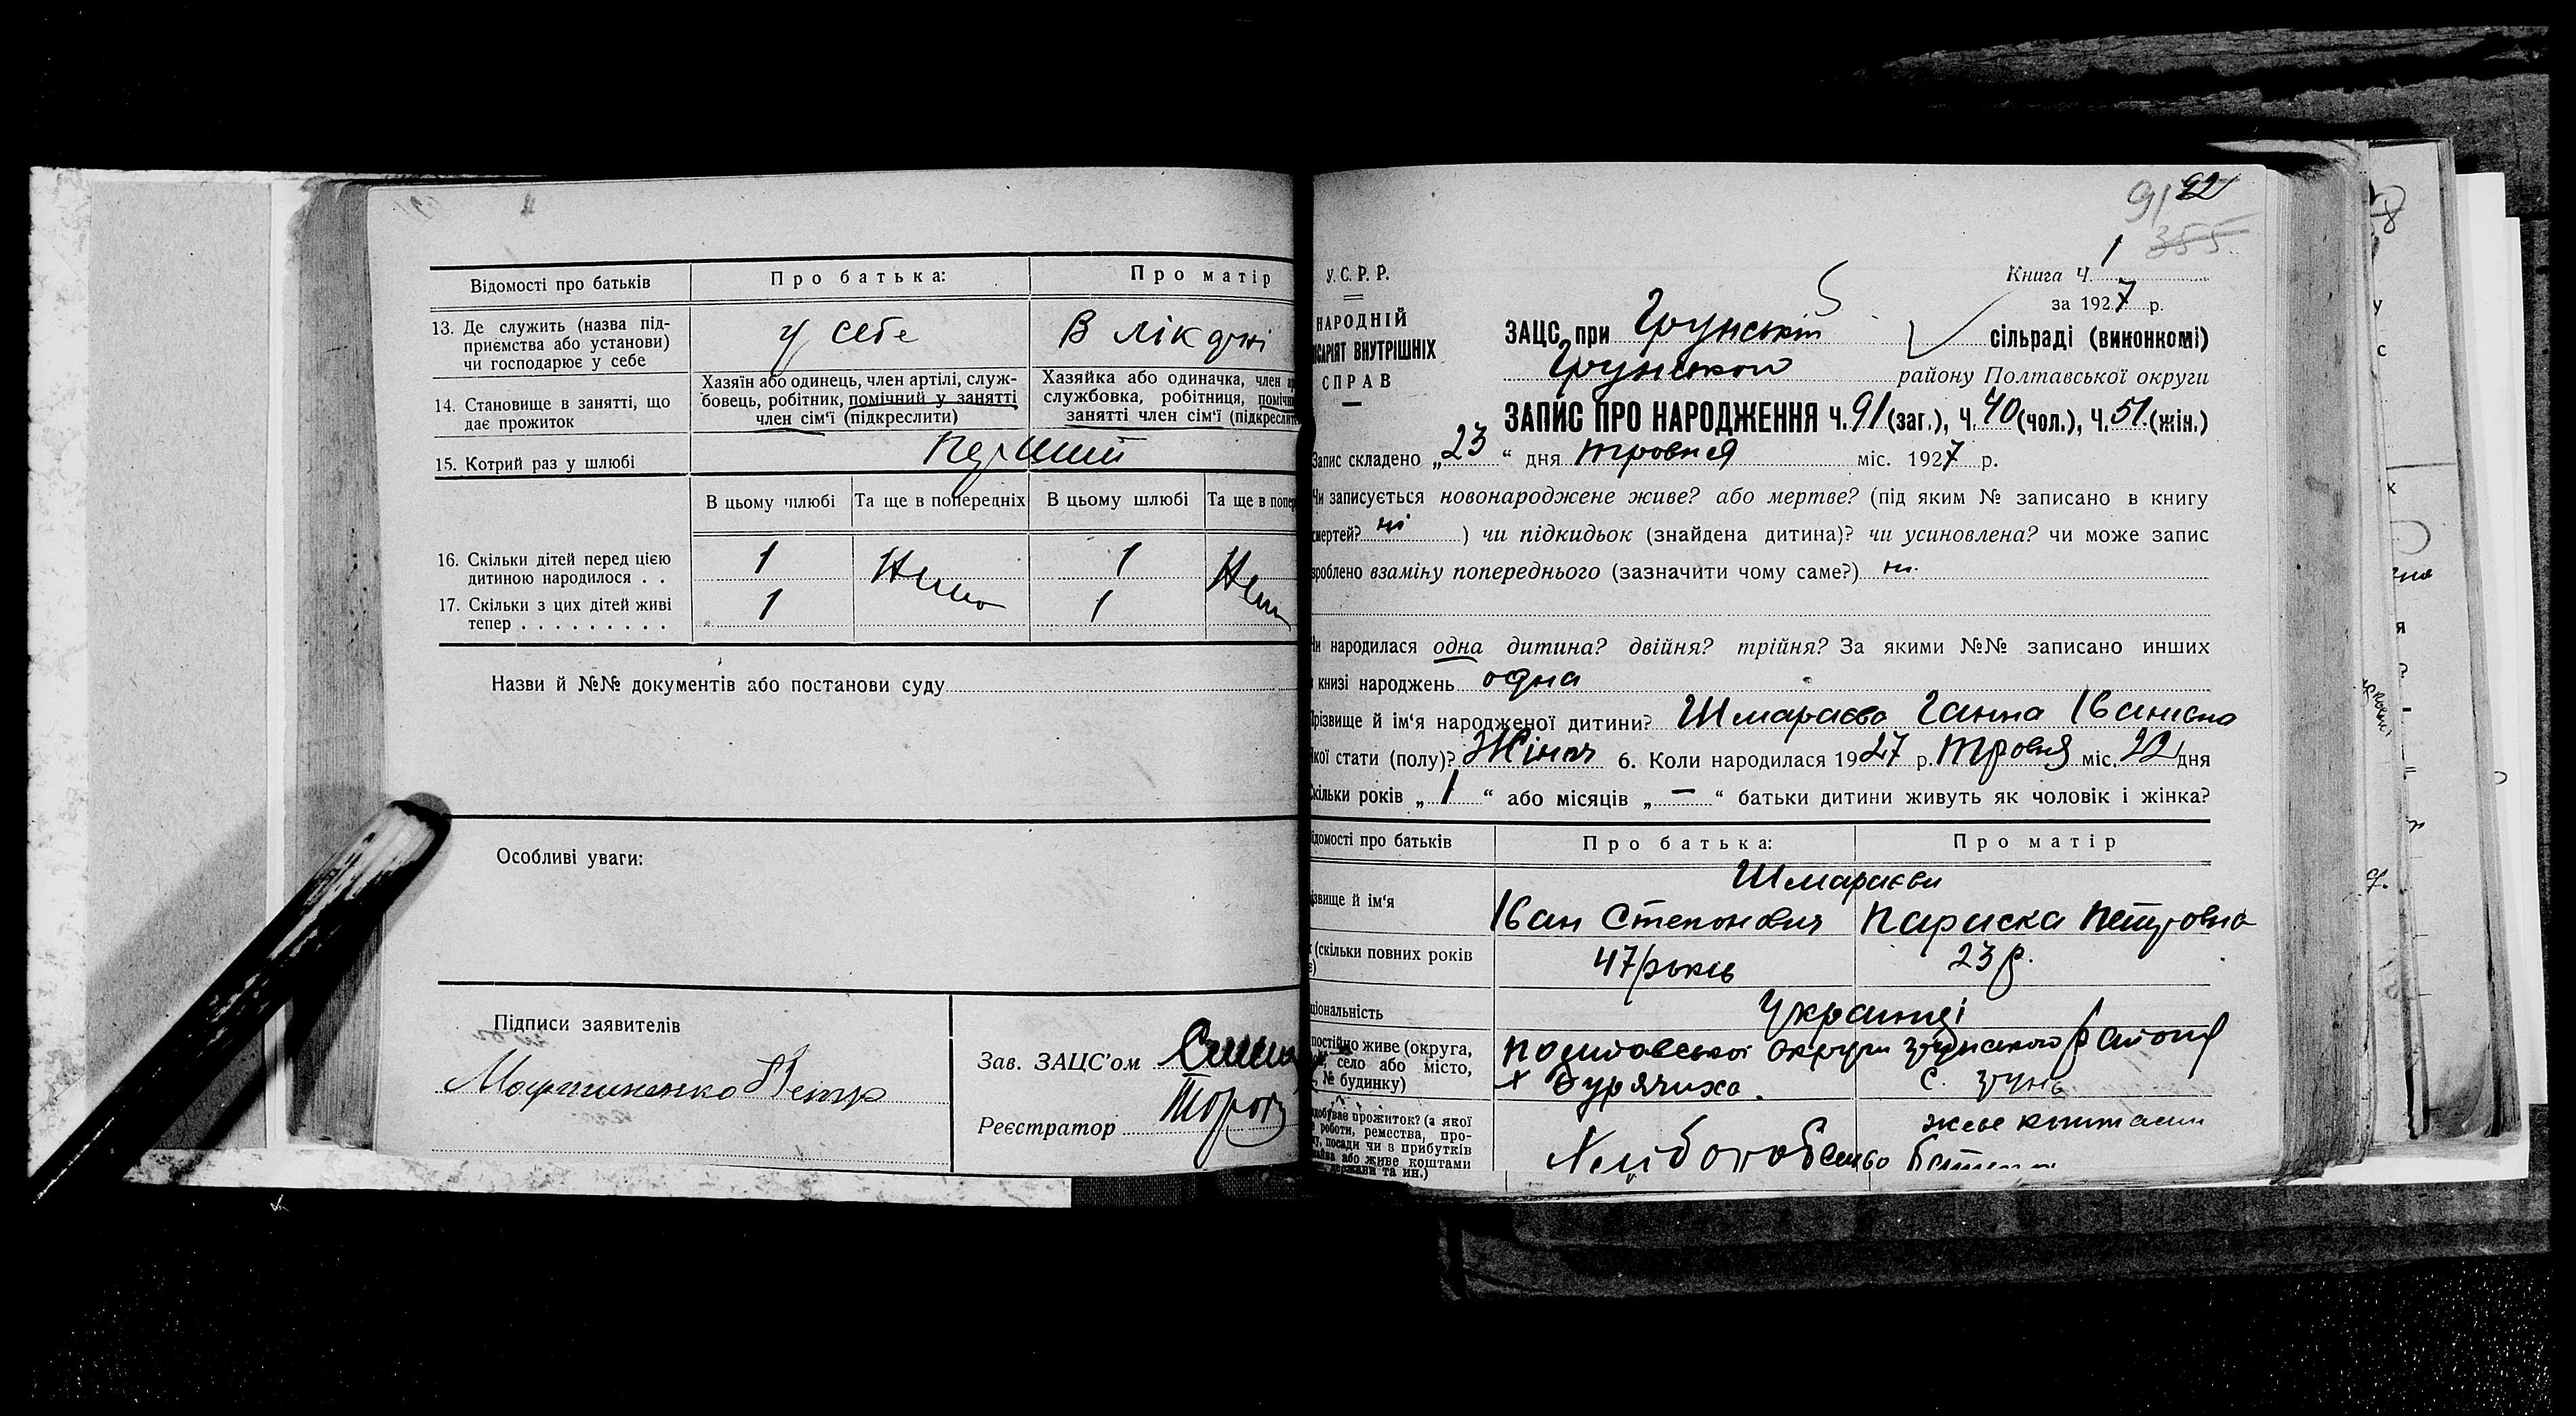 Відомості про батьків
Про батька:
Про матір
13. Де служить (назва під-
приємства або установи)
чи господарює у себе
у себе
В лік дні
14. Становище в занятті, що
дає прожиток
Хазяїн або одинець, член артілі, служ-
бовець, робітник, помічний у занятті
член сім'ї (підкреслити)
Хазяйка або одиначка, член
службовка, робітниця,
занятті член сім'ї
15. Котрий раз у шлюбі
перший
В цьому шлюбі Та ще в попередніх В цьому шлюбі Та ще в
16. Скільки дітей перед цією
дитиною народилося . .
1 1
17. Скільки з цих дітей живі
тепер . . . . . . . . .
1 1
Назви й №№ документів або постанови суду
Особливі уваги:
Підписи заявителів
Мартиненко Петр
Зав. ЗАЦС'ом
Реєстратор
91 92
355
У.С.Р.Р.
НАРОДНІЙ
ВНУТРІШНІХ
СПРАВ
Книга Ч. 1
за 1927 р.
ЗАЦС при Грунській сільраді (виконкомі)
Грунського району Полтавської округи
ЗАПИС ПРО НАРОДЖЕННЯ Ч. 91 (заг.), Ч. 40 (чол.), Ч. 51. (жін.)
Запис складено „23“ дня травня міс. 1927 р.
Чи записується новонароджене живе? або мертве? (під яким № записано в книгу
смертей? ні ) чи підкидьок (знайдена дитина)? чи усиновлена? чи може запис
зроблено взаміну попереднього (зазначити чому саме?) ні
Чи народилася одна дитина? двійня? трійня? За якими №№ записано инших
в книзі народжень одна
Прізвище й ім'я народженої дитини? Шмараєва Ганна Іванівна
Якої стати (полу)? Жіноч 6. Коли народилася 1927 р. травня міс. 22 дня
Скільки років „1“ або місяців „—“ батьки дитини живуть як чоловік і жінка?
Відомості про батьків
Про батька:
Про матір
Шмараєви
й ім'я
Іван Степанович Параска Петровна
(скільки повних років
47 років 23 р.
Українці
живе (округа,
село або місто,
№ будинку)
Полтавської округи Грунського району
х Бурячиха. с. Грунь
прожиток? (з якої
роботи, ремества, про-
посади чи з прибутків
або живе коштами
держави та ин.)
Хліборобство
живе коштами